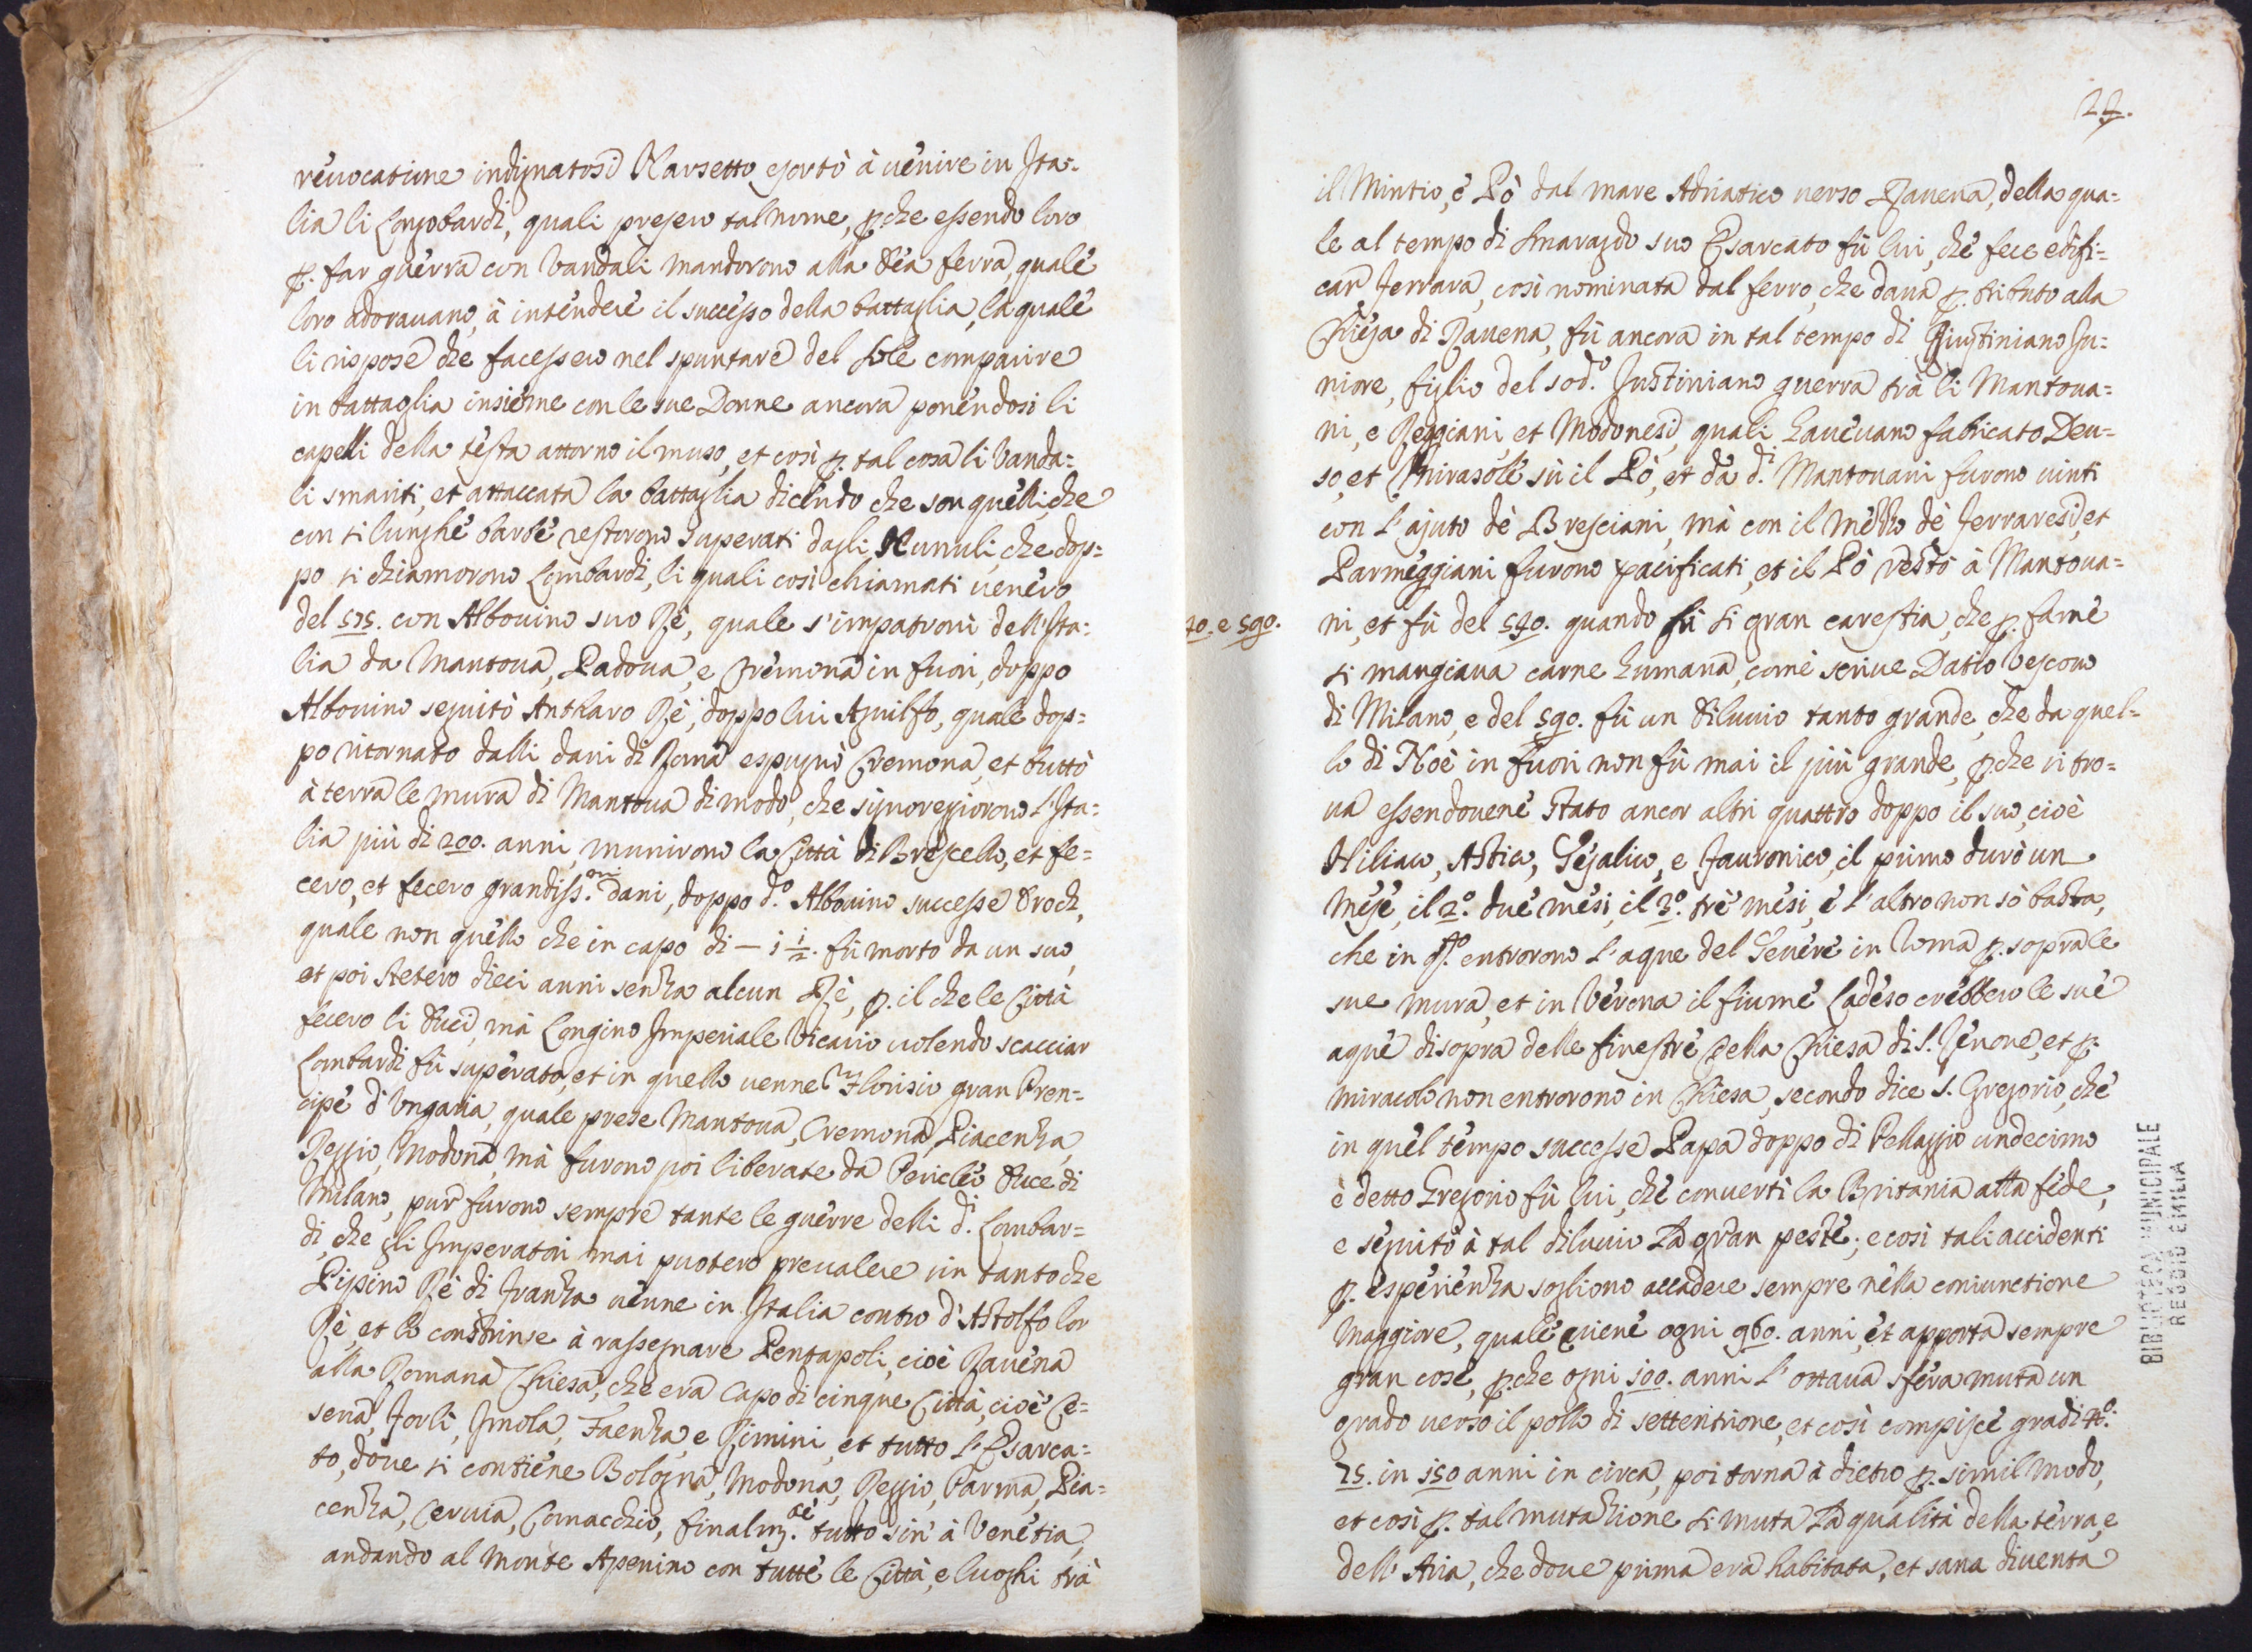 revocatione indignatosi Narsetto esortò à venire in Ita=
lia li Longobardi, quali presero tal nome, p.che essendo loro
p. far guerra con Vandali mandorono alla Dea ferra, quale
loro adoravano, à intendere il successo della battaglia, la quale
li rispose che facessero nel spuntare del sole comparire
in battaglia insieme con le sue Donne ancora ponendosi li
capelli della testa attorno il muso, et così p. tal cosa li Vanda=
li smariti, et attaccata la battaglia dicendo che son quelli, che
con sì lunghe barbe restorono superati dagli Hunuli, che dop=
po si chiamorono Lombardi, li quali così chiamati venero
del 575. con Albouino suo Rè, quale s'impatronì dell'Ita=
lia da Mantova, Padova, e Cremona in fuori, doppo
Albouino seguitò Antharo Rè, doppo lui Agnilfo, quale dop=
po ritornato dalli dani di Roma espugnò Cremona, et buttò
à terra le mura di Mantova di modo, che signoreggiorono l'Ita=
lia più di 200. anni, munirono la Città di Brescello, et fe=
cero, et fecero grandiss.mi dani, doppo d.o Albouino successe Droch,
quale non quello che in capo di — i i/2. fù morto da un suo,
et poi stetero dieci anni senza alcun Rè, p. il che le Città
fecero li Duci, mà Longino Imperiale Vicario volendo scacciar
Lombardi fù superato, et in quello venne Florisio gran Pren=
cipe d'Ungaria, quale prese Mantova, Cremona, Piacenza,
Reggio, Modona, mà furono poi liberate da Pericleo Duce di
Milano, pur furono sempre tante le guerre delli d.i Lombar=
di, che gli Imperatori mai puotero prevalere in tanto che
Pipino Rè di Franza venne in Italia contro d'Astolfo lor
Rè, et lo constrinse à rassegnare Pentapoli, cioè Ravena
alla Romana Chiesa, che era Capo di cinque Città, cioè Ce=
sena, Forlì, Imola, Faenza, e Rimini, et tutto l'Esarca=
to, dove si contiene Bologna, Modona, Reggio, Parma, Pia=
cenza, Cervia, Comacchio, finalm.te tutto sin' à Venetia,
andando al Monte Apenino con tutte le Città, e luoghi trà
27.
il Mintio, e Pò dal mare Adriatico verso Ravena, della qua=
le al tempo di Smaragdo suo Esarcato fù lui, che fece edifi=
car Ferrara, così nominata dal ferro, che dava p. tributo alla
Chiesa di Ravena, fù ancora in tal tempo di Giustiniano Ju=
niore, figlio del sod.o Justiniano guerra trà li Mantova=
ni, e Reggiani et Modonesi, quali havevano fabricato Deu=
so, et Mirasole sù il Pò, et da d.i Mantovani furono vinti
con l'ajuto dè Bresciani, mà con il mezzo dè Ferraresi, et
Parmeggiani furono pacificati, et il Pò restò à Mantova=
40. e 590.
ni, et fù del 540. quando fù sì gran carestia, che p. fame
si mangiava carne humana, come scrive Datio Vescovo
di Milano, e del 590. fù un diluvio tanto grande, che da quel=
lo di Noè in fuori non fù mai il più grande, p.che si tro=
va essendovene stato ancor altri quattro doppo il suo, cioè
Niliaco, Astico, Tesalico, e Fauronico, il primo durò un
mese, il 2.o due mesi, il 3.o trè mesi, è l'altro non sò basta,
che in q.to entrorono l'aque del Tevere in Roma p. sopra le
sue mura, et in Verona il fiume Ladeso crebbero le sue
aque disopra delle finestre della Chiesa di S. Zenone, et p.
miracolo non entrorono in Chiesa, secondo dice S. Gregorio, che
in quel tempo successe Papa doppo di Pellaggio undecimo
e detto Gregorio fù lui, che convertì la Britania alla fede,
e seguitò à tal diluvio la gran peste; e così tali accidenti
p. esperienza sogliono accadere sempre nella coniunctione
Maggiore, quale viene ogni 960. anni, et apporta sempre
gran cose, p.che ogni 100. anni l'ottava sfera muta un
grado verso il pollo di settentrione, et così compisce gradi
75. in 150 anni in circa, poi torna à dietro p. simil modo,
et così p. tal mutatione si muta la qualità della terra, e
dell'Aria, che dove prima era habitata, et sana diventa
BIBLIOTECA MUNICIPALE
REGGIO EMILIA